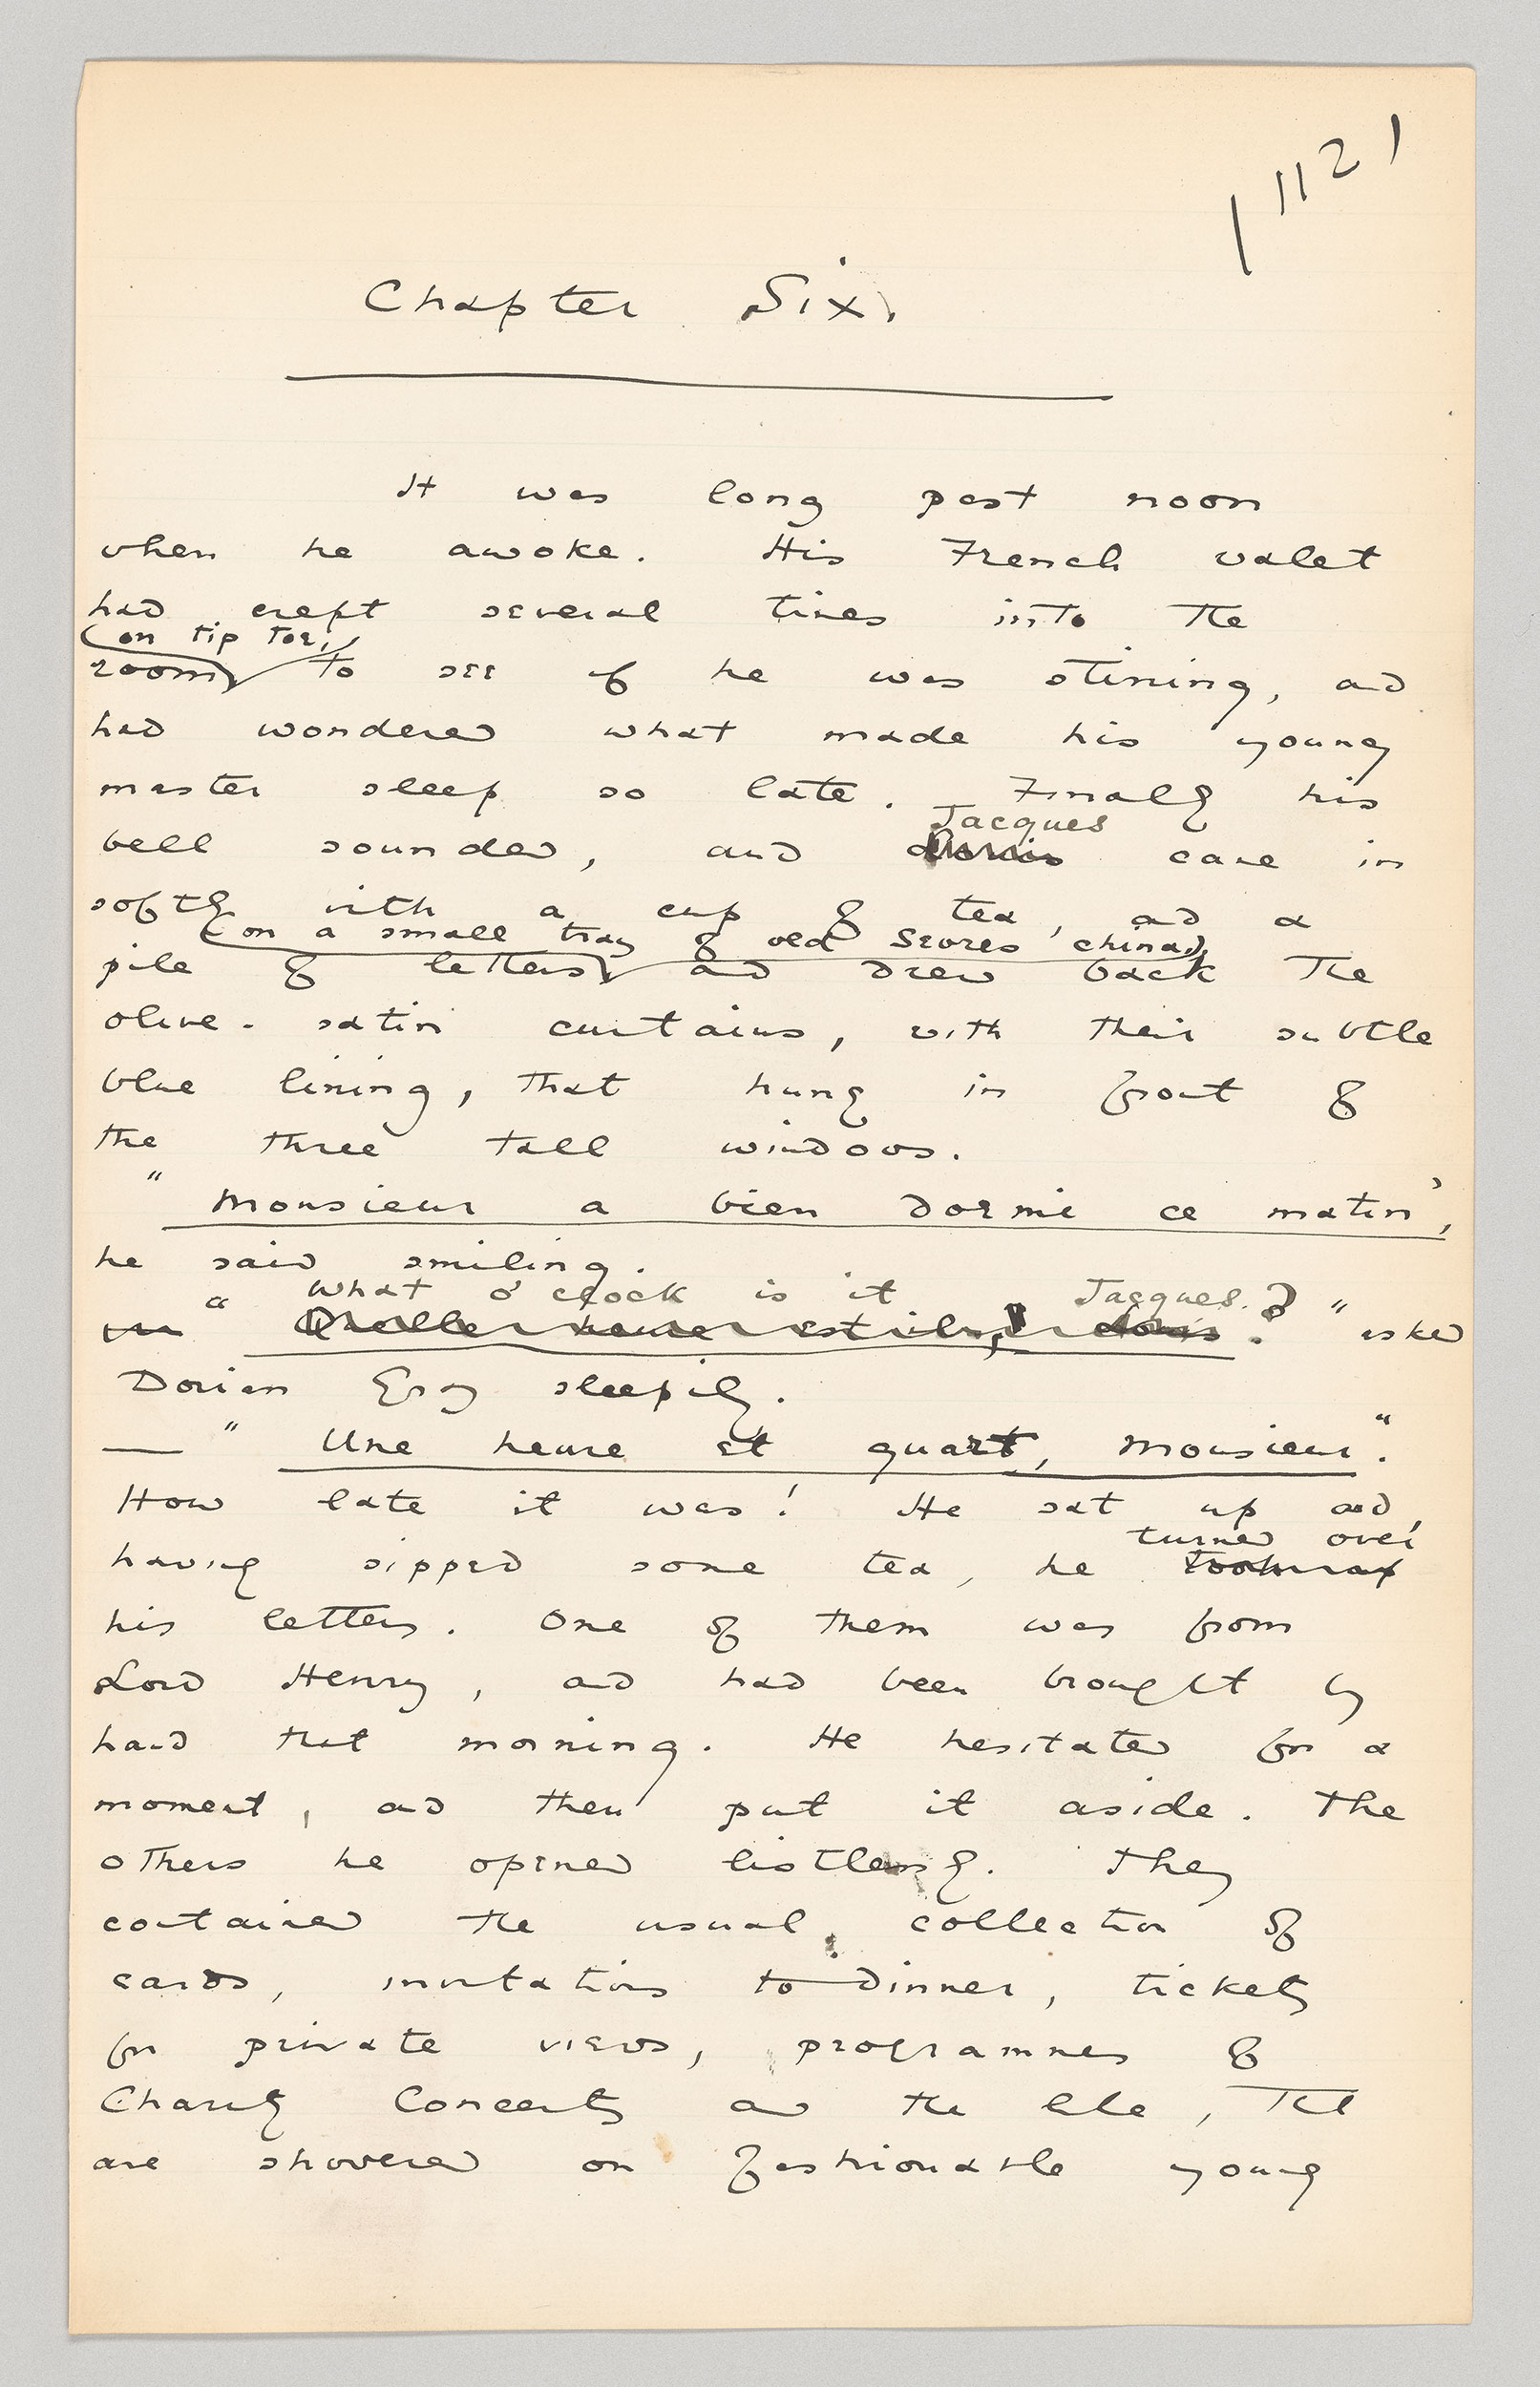 1121
Chapter Six.
It was long past noon
when he awoke. His French valet
had crept several times into the
(on tip toe,)
room to see if he was stirring, and
had wondered what made his young
master sleep so late. Finally his
Jacques
bell sounded, and Louis came in
softly with a cup of tea, and a
(on a small tray of old Sevres china)
pile of letters and drew back the
olive-satin curtains, with their subtle
blue lining, that hung in front of
the three tall windows.
"Monsieur a bien dormi ce matin",
he said smiling.
"What o'clock is it Jacques?" asked
Quelle heure est-il, Louis?
Dorian Gray sleepily.
— "Une heure et quart, Monsieur".
How late it was! He sat up and,
turned over
having sipped some tea, he took up
his letters. One of them was from
Lord Henry, and had been brought by
hand that morning. He hesitated for a
moment, and then put it aside. The
others he opened listlessly. They
contained the usual collection of
cards, invitations to dinner, tickets
for private views, programmes of
Charity Concerts and the like, that
are showered on fashionable young